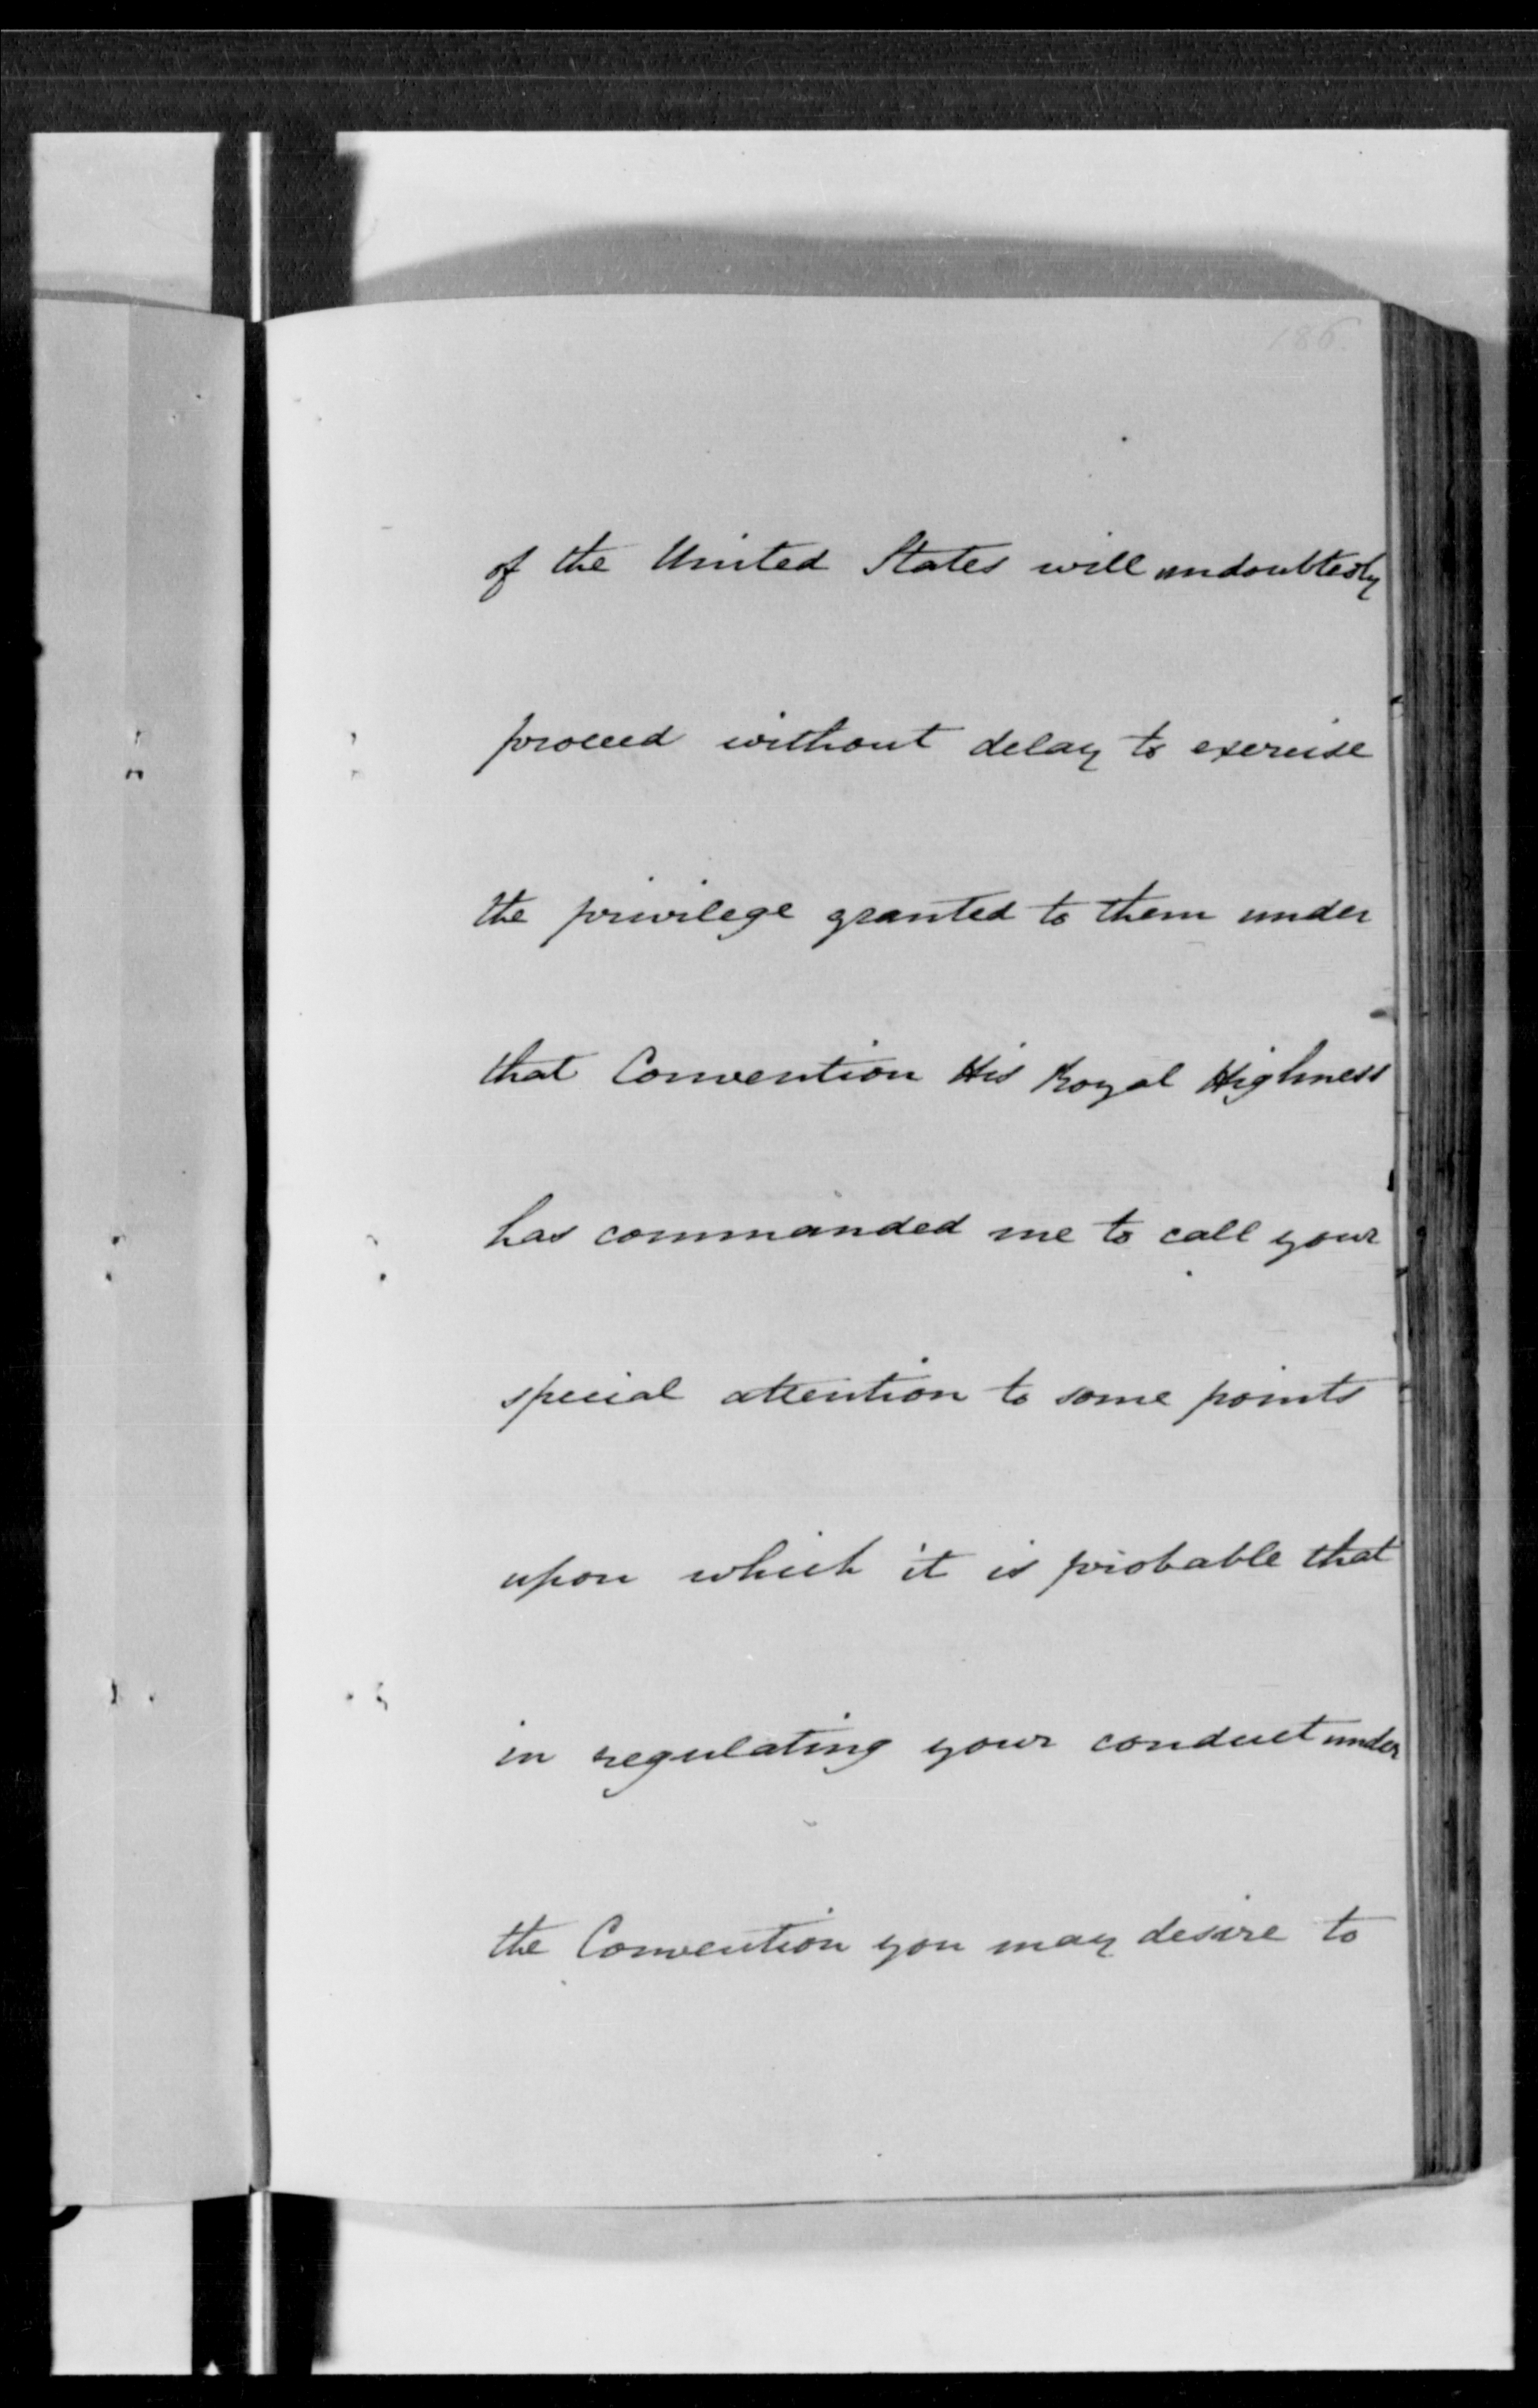 186.
of the United States will undoubtedly
proceed without delay to exercise
the privilege granted to them under
that Convention His Royal Highness
has commanded me to call your
special attention to some points
upon which it is probable that
in regulating your conduct under
the Convention you may desire to